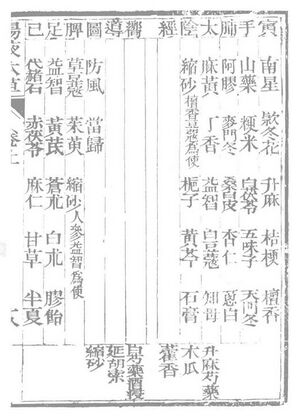 寅 南星 款冬花 升麻 桔梗 檀香
手 山藥 粳米 白茯苓 五味子 天門冬
肺 阿膠 麥門冬 桑白皮 杏仁 蔥白
太 麻黃 丁香 益智 白豆蔻 知母 升麻芍藥
陰 縮砂檀香豆蔻為使 梔子 黃芩 石膏 木瓜
經 藿香
嚮 白芍藥酒浸
導 延胡索
圖 防風 當歸 縮砂
脾 草豆蔻 茱萸 縮砂人參益智為使
足 益智 黃芪 蒼朮 白朮 膠飴
巳 代赭石 赤茯苓 麻仁 甘草 半夏
湯液本草 卷上 八